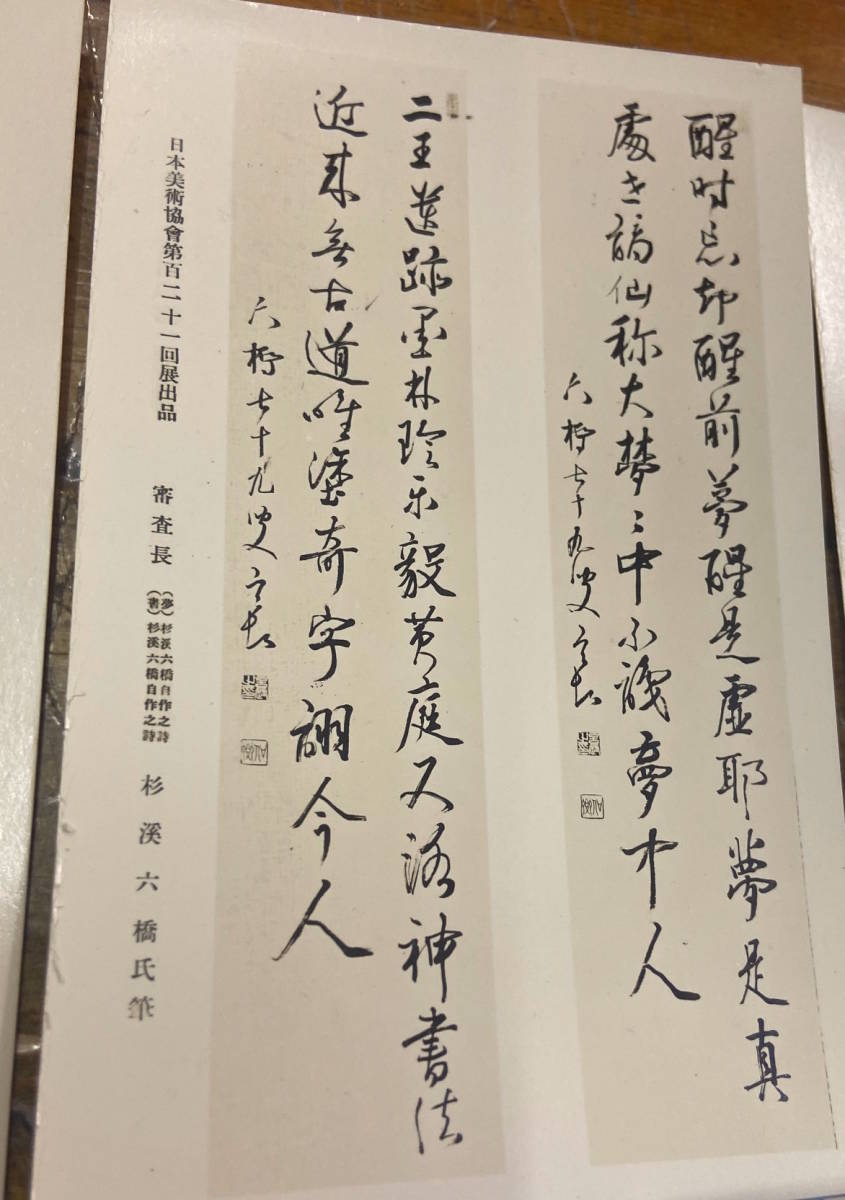 醒时忘却醒前夢醒是虚耶夢是真
處世謫仙称大夢〻中不識夢中人
六橋七十九叟言長
二王遺跡墨林珍乐毅黄庭又洛神書法
近来無古道唯塗奇字詡今人
六橋七十九叟言長
日本美術協會第百二十一回展出品　審査長
(夢)杉溪六橋自作之詩
(書)杉溪六橋自作之詩
杉溪六橋氏筆